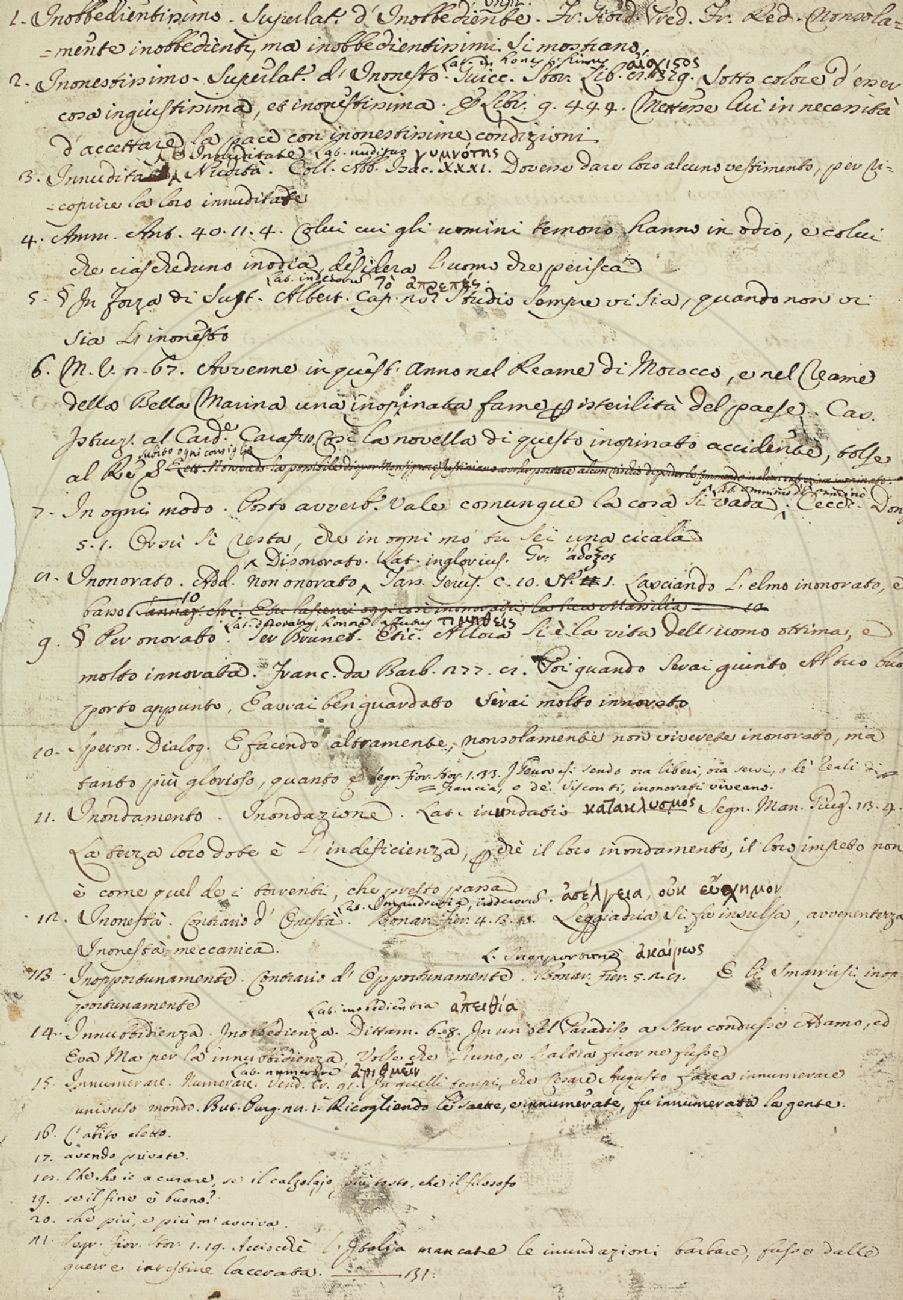 1. Inobbedientissimo. Superlat. d'Inobbediente. Fr. Giord. Pred. Fr. Red. Nonsola-
-mente inobbedienti, ma inobbedientissimi si mostrano.
2. Inonestissimo. Superlat. d'Inonesto. Guicc. Stor. Lib. Sotto colore d'esser
cosa ingiustissima, et inonestissima. § Libr. 9. 444. Mettesse lui in necessità
d'accettare la pace con inonestissime condizioni
Innuditate Lat. nuditas γυμνότης
3. Innudità Nudità. Coll. Abb. Isac. XXXI. Dovere dare loro alcuno vestimento, per ri-
-coprire la loro innuditate
4. Amm. Ant. 40. 11. 4. Colui cui gli uomini temono hanno in odio, e colui
che ciascheduno inodia, desidera l'uomo che perisca
5. § In forza di Sust. Albert. Cap. Studio sempre vi sia, quando non vi
sia l'inonesto
6. M. V. 11. 67. Avvenne in quest'anno nel Reame di Morocco, e nel Reame
della Bella Marina una inopinata fame per isterilità del paese. Cas.
Istruz. al Card. Caraff. Così la novella di questo inopinato accidente, tolse
subito ogni consiglio
al Re, e
7. In ogni modo. Posto avverb. Vale comunque la cosa si vada. Cecch. Donz.
5. 1. Orsù si resta, che in ogni mo' tu sei una cicala
Disonorato. Lat. inglorius. Gr. ἄδοξος
8. Inonorato. Add. Non onorato. Tass. Gerus. C. 10. Lasciando l'elmo inonorato, e
basso
9. § Per onorato. Ser Brunet. Etic. Allora si è la vita dell'uomo ottima, e
molto innorata. Franc. da Barb. 277. Poi quando serai giunto Al tuo buo
porto appunto, E avrai ben guardato Serai molto innorato
10. Speron. Dialog. E facendo altramente, non solamente non viverete inonorato, ma
tanto più glorioso, quanto e Segr. Fior. Stor. 1. 33. I Genovesi sendo ora liberi, ora servi, o de' Reali di
Francia, o de' Visconti, inonorati viveano.
11. Inondamento. Inondazione. Lat. inundatio κατακλυσμός Segn. Man. Giug. 13. 4.
La terza loro dote è l'indeficienza, perchè il loro inondamento, il loro impeto non
è come quel de i torrenti, che presto passa
Lat. Impudicitia, indecorus. ἀσέλγεια, οὐκ εὔσχημον
12. Inonestà. Contrario d'Onestà. Bonar. Fier. 4. Leggiadria si fu insulsa, avvenentezza
Inonestà meccanica.
ἀκαίρως
13. Inopportunamente. Contrario d'Opportunamente. Bonar. Fier. 5. E lì smarrirsi inop
portunamente
Lat. inobedientia ἀπειθία
14. Innubbidienza. Inobbedienza. Dittam. 6. In un del Paradiso a star condusse Adamo, ed
Eva Ma per la innubbidienza, volle che l'uno, e l'altra fuor ne fusse
Lat. numerare ἀριθμεῖν
15. Innumerare. Numerare. In quelli tempi, che Cesare Augusto facea innumerare
universo mondo. But. Purg. Ricogliendo le saette, e innumerate, fu innumerata la gente.
16. L'abito eletto.
17. avendo private.
18. Che ho io a curare, se il calzolajo, più tosto, che il filosofo
19. se il fine è buono?
20. che più, e più m'avviva.
21. Segr. Fior. Stor. 1. 19. Acciocchè l'Italia mancate le inundazioni barbare, fusse dalle
guerre intestine lacerata. 131.